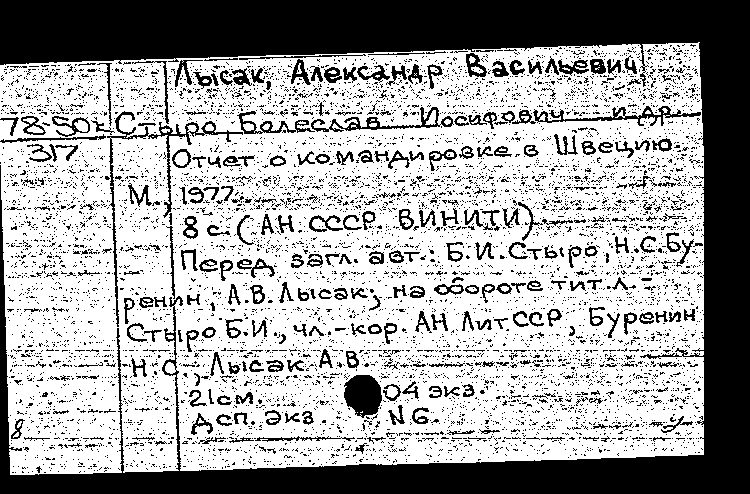 Лысак, Александр Васильевич
78-50к Стыро, Болеслав Иосифович и др.
317
Отчет о командировке в Швецию.
М., 1977.
8 с. (АН СССР. ВИНИТИ).
Перед загл. авт.: Б.И.Стыро, Н.С.Бу-
ренин, А.В.Лысак; на обороте тит.л.:
Стыро Б.И., чл.-кор. АН ЛитССР, Буренин
Н.С., Лысак А.В.
21см. 04 экз.
Дсп. экз. N6.
8 У